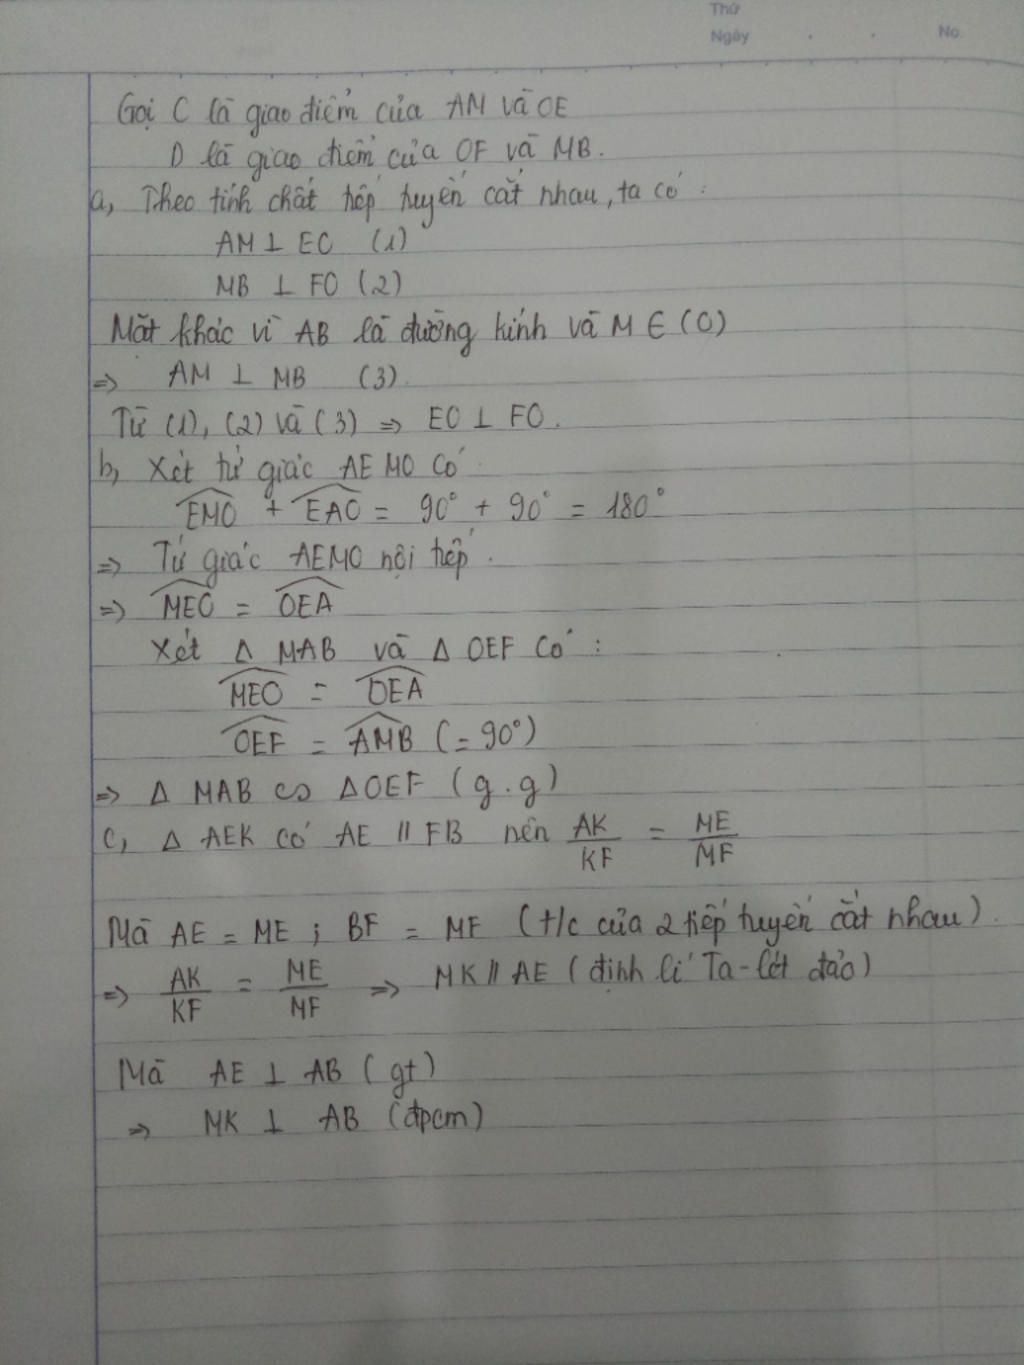 Thứ
Ngày . . No.
Gọi C là giao điểm của AM và OE
D là giao điểm của OF và MB.
a, Theo tính chất tiếp tuyến cắt nhau, ta có :
AM ⊥ EO (1)
MB ⊥ FO (2)
Mặt khác vì AB là đường kính và M ∈ (O)
=> AM ⊥ MB (3).
Từ (1), (2) và (3) => EO ⊥ FO.
b, Xét tứ giác AEMO có
EMO + EAO = 90° + 90° = 180°
=> Tứ giác AEMO nội tiếp.
=> MEO = OEA
Xét Δ MAB và Δ OEF có :
MEO = OEA
OEF = AMB (= 90°)
=> Δ MAB ∽ Δ OEF (g.g)
c, Δ AEK có AE // FB nên AK/KF = ME/MF
Mà AE = ME ; BF = MF (t/c của 2 tiếp tuyến cắt nhau).
=> AK/KF = ME/MF => MK // AE (định lí Ta-lét đảo)
Mà AE ⊥ AB (gt)
=> MK ⊥ AB (đpcm)